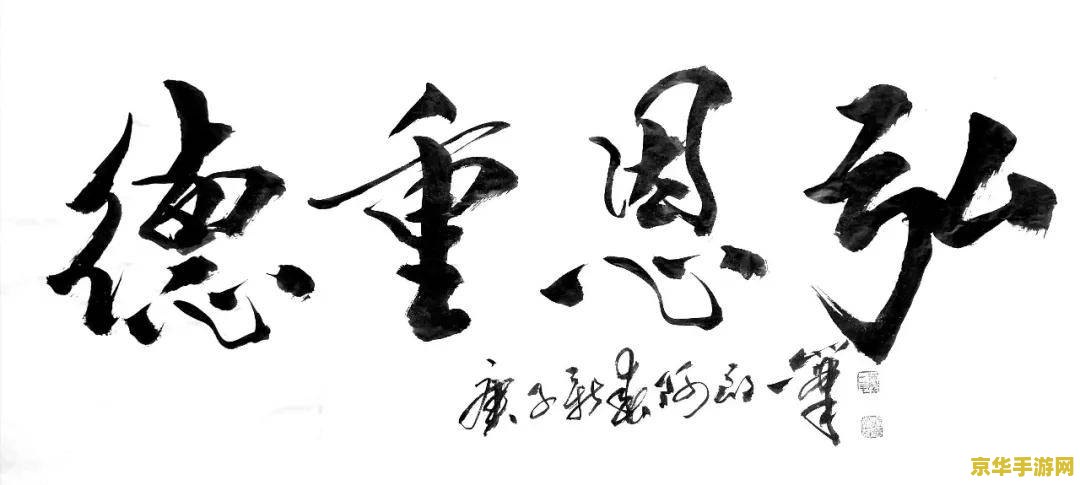 德重恩弘
庚子新春阿郎一筆
京华手游网